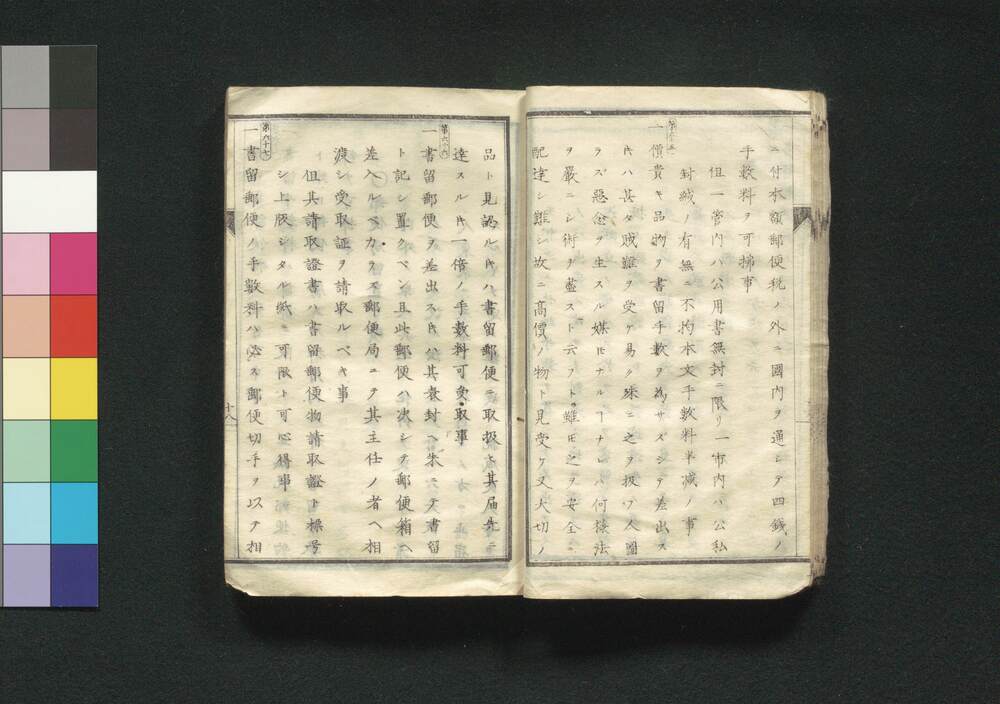 ニ付本額郵便税ノ外ニ國内ヲ通シテ四錢ノ
手數料ヲ可拂事
但一管内ハ公用書無封ニ限リ一市内ハ公私
封緘ノ有無ニ不拘本文手數料半減ノ事
第六十五
一價貴キ品物ヲ書留手數ヲ為サズシテ差出ス
片ハ甚タ賊難ヲ受ケ易ク殊ニ之ヲ扱フ人圖
ラズ惡念ヲ生スル媒トモナルヿナレハ何様法
ヲ嚴ニシ術ヲ盡スト云フト雖モ之ヲ安全ニ
配達シ難シ故ニ高價ノ物ト見受ケ又大切ノ
品ト見認ル片ハ書留郵便ニ取扱ヒ其届先ニ
達スル片一倍ノ手數料可受取事
第六十六
一書留郵便ヲ差出ス片ハ其表封ヘ朱ニテ書留
ト記シ置クベシ且此郵便ハ決シテ郵便箱ヘ
差入ルベカラス郵便局ニテ其主任ノ者ヘ相
渡シ受取証ヲ請取ルベキ事
但其請取證書ハ書留郵便物請取證ト標号
シ上版シタル紙ニ可限ト可心得事
第六十七
一書留郵便ノ手數料ハ必ス郵便切手ヲ以テ相
十八